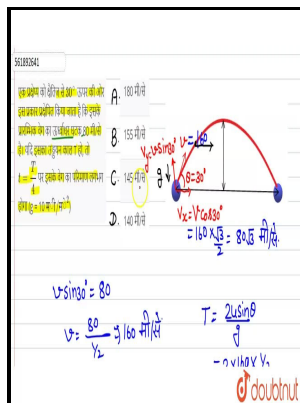 561892641
एक प्रक्षेप्य को क्षैतिज से 30° ऊपर की ओर
इस प्रकार प्रक्षेपित किया जाता है कि इसके
प्रारम्भिक वेग का ऊर्ध्वाधर घटक 80 मी/से
हो। यदि इसका उड्डयन काल T हो, तो
t = T/4 पर इसके वेग का परिमाण लगभग
होगा (g = 10 मी/से²)
A. 180 मी/से
B. 155 मी/से
C. 145 मी/से
D. 140 मी/से
Vy = vsin30° v = 160
g θ=30°
Vx = Vcos30°
= 160 × √3/2 = 80√3 मी/से.
vsin30° = 80
v = 80/½ ⇒ 160 मी/से
T = 2usinθ/g
= 2×160×½
doubtnut